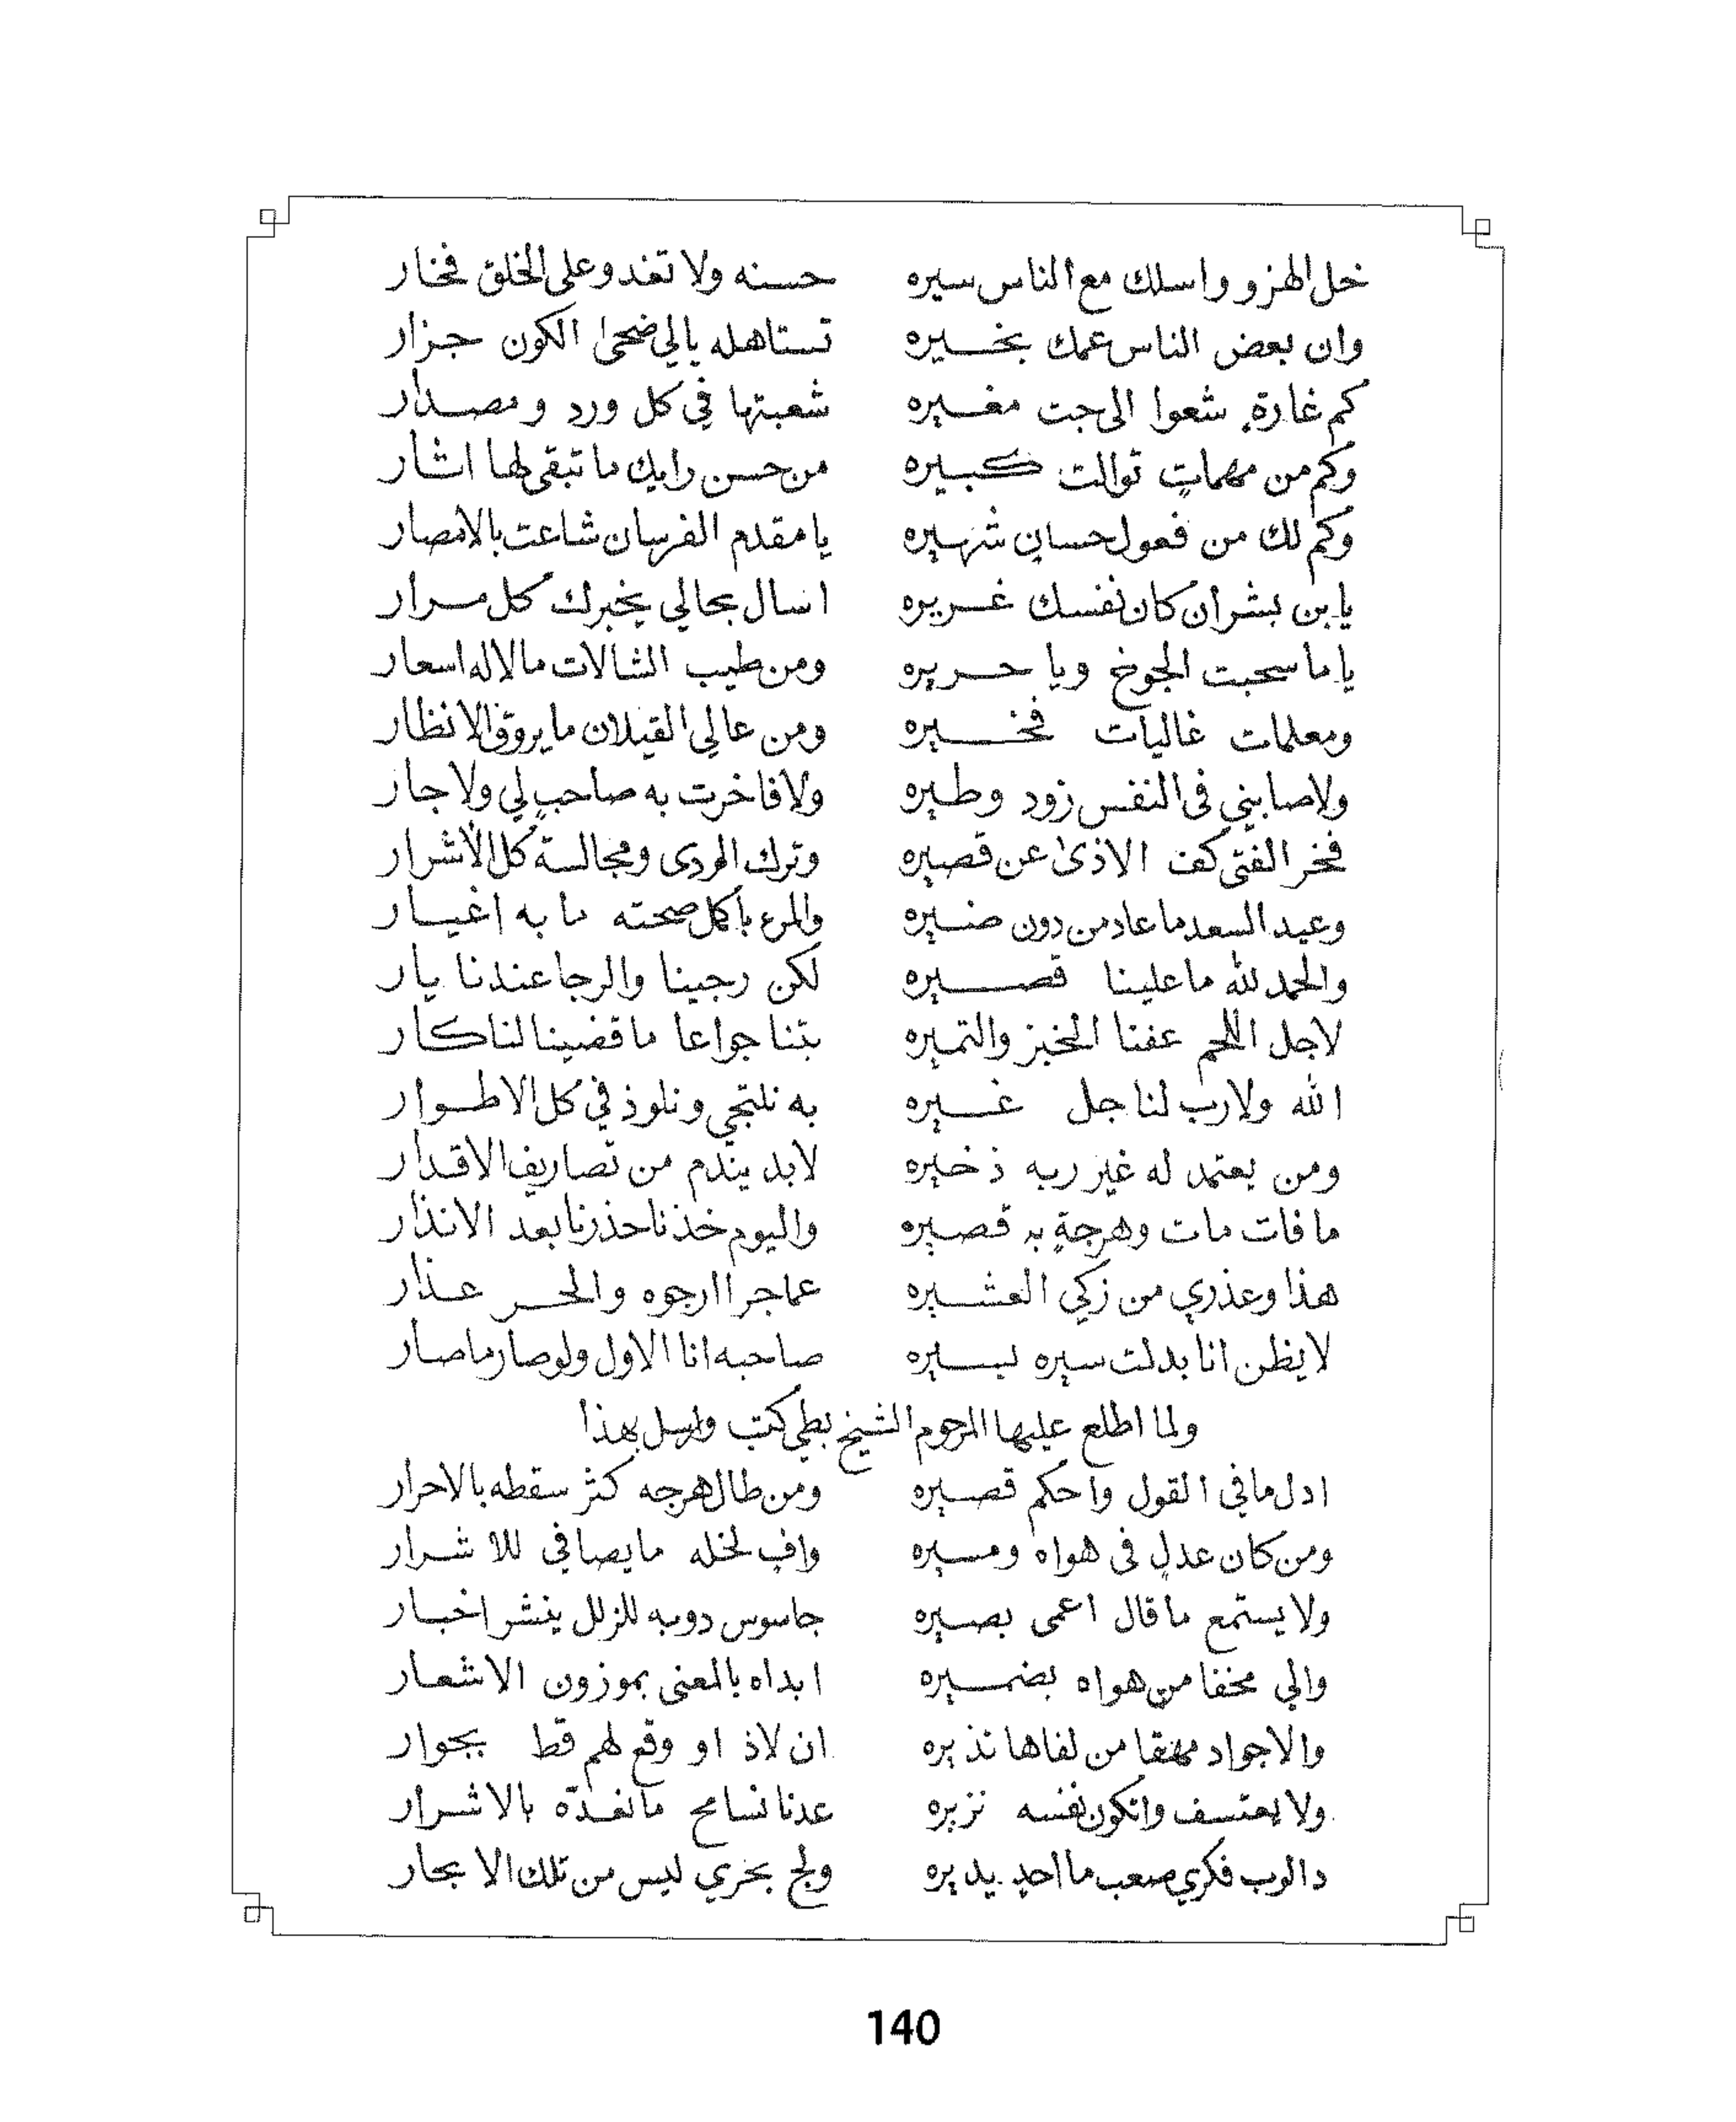 خل الهزو واسلك مع الناس سيره حسنه ولا تغدو على الخلق فخار
وان بعض الناس عمك بخيره تستاهله يالي ضحى الكون جزار
كم غارةٍ شعوا الى جت مغيره شعبتها في كل ورد ومصدار
وكم من مهماتٍ توالت كبيره من حسن رايك ما تبقى لها اثار
وكم لك من فعولٍ حسانٍ شهيره يا مقدم الفرسان شاعت بالامصار
يا بن بشر ان كان نفسك غريره اسال بحالي يخبرك كل مرار
يا ما سحبت الجوخ ويا حريره ومن طيب الشالات مالا له اسعار
ومعلمات غاليات فخيره ومن عالي القيلان ما يروق الانظار
ولا صابني في النفس زود وطيره ولا فاخرت به صاحبٍ لي ولا جار
فخر الفتى كف الاذى عن قصيره وترك الردى ومجالسة كل الأشرار
وعيد السعد ما عاد من دون ضيره والمرء باكمل صحته ما به اغيار
والحمد لله ما علينا قصيره لكن رجينا والرجا عندنا يار
لاجل اللحم عفنا الخبز والتميره بتنا جواعا ما قضينا لنا كار
الله ولا رب لنا جل غيره به نلتجي ونلوذ في كل الاطوار
ومن يعتمد له غير ربه ذخيره لابد يندم من تصاريف الاقدار
ما فات مات وهرجةٍ به قصيره واليوم خذنا حذرنا بعد الانذار
هذا وعذري من زكي العشيره عما جرا ارجوه والحر عذار
لا يظن انا بدلت سيره بسيره صاحبه انا الاول ولو صار ما صار
ولما اطلع عليها المرحوم الشيخ بطي كتب وارسل بهذا
ادل ما في القول واحكم قصيره ومن طال هرجه كثر سقطه بالاحرار
ومن كان عدلٍ في هواه ومسيره وافي لخله ما يصافي للاشرار
ولا يستمع ما قال اعمى بصيره جاسوس دوبه للزلل ينشر اخبار
والي مخفا من هواه بضميره ابداه بالمعنى بموزون الاشعار
والاجواد مهقا من لفاها نذيره ان لاذ او وقع لهم قط بجوار
ولا يعتسف واتكون نفسه نزيره عدنا نسامح ما نغدّه بالاشرار
دالوب فكري صعب ما احدٍ يديره ولج بحري ليس من تلك الابحار
140